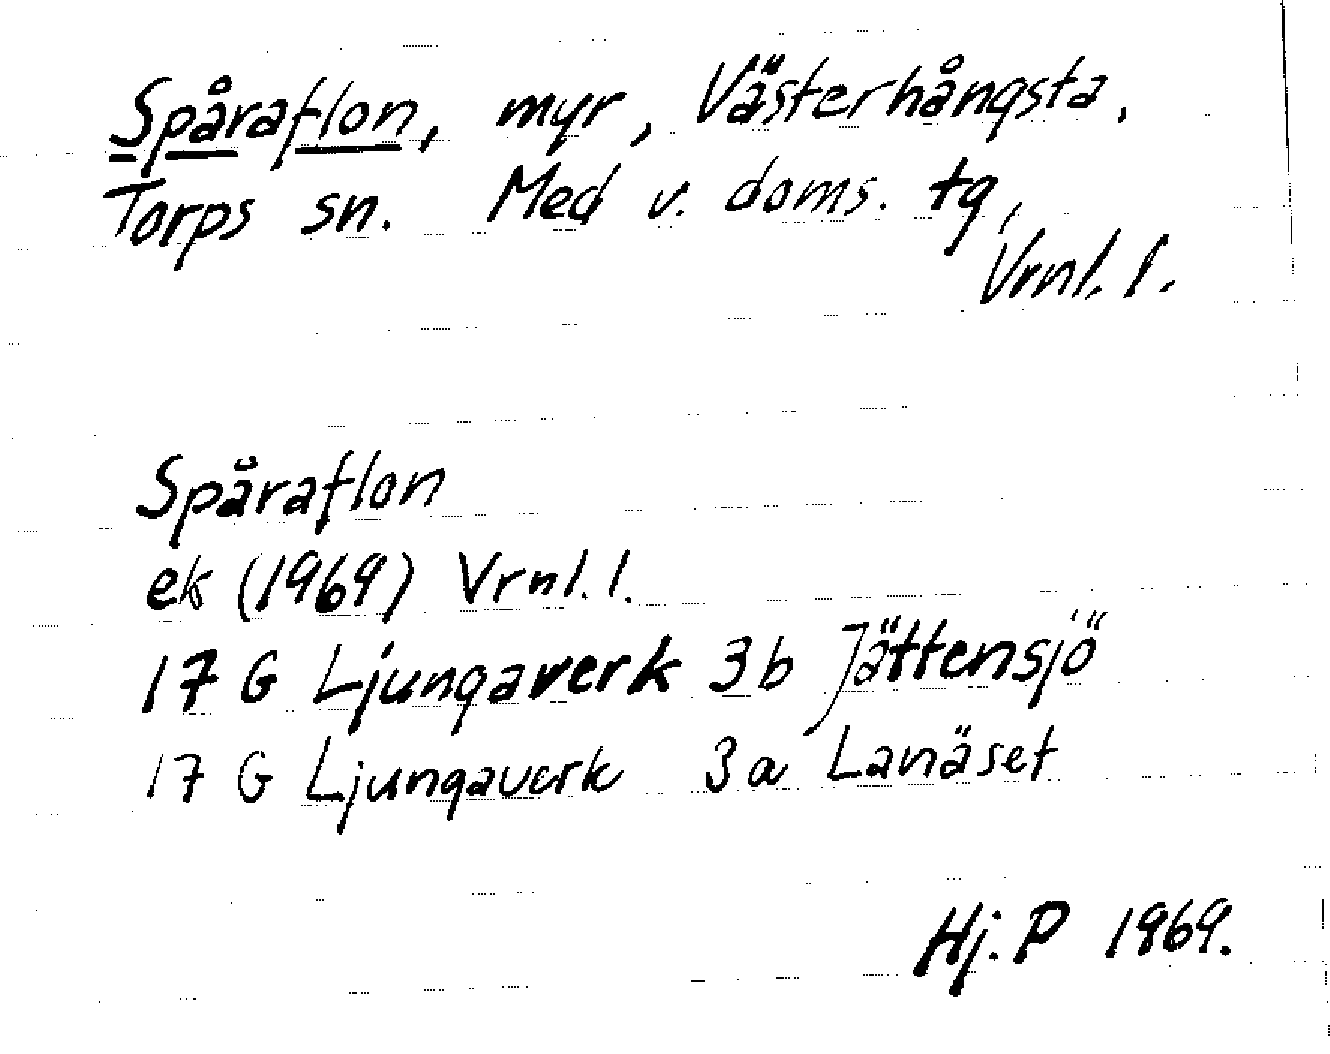 Spåraflon, myr, Västerhångsta.
Torps sn. Med v. doms. tg,
Vrnl. l.
Spåraflon
ek (1969) Vrnl. l.
17 G Ljungaverk 3b Jättensjö
17 G Ljungaverk 3a Lanäset
Hj. P 1969.